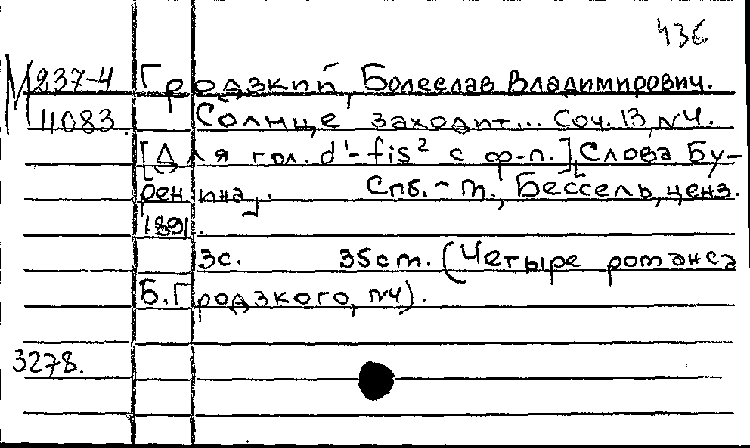 43с
М 237-4 Гродзкий, Болеслав Владимирович.
4083 Солнце заходит... Соч. 13, №4.
[Для гол. d'-fis² с ф-п.], Слова Бу-
ренина]. Спб. - М., Бессель, ценз.
1891.
3с. 35см. (Четыре романса
Б. Гродзкого, №4).
3278.